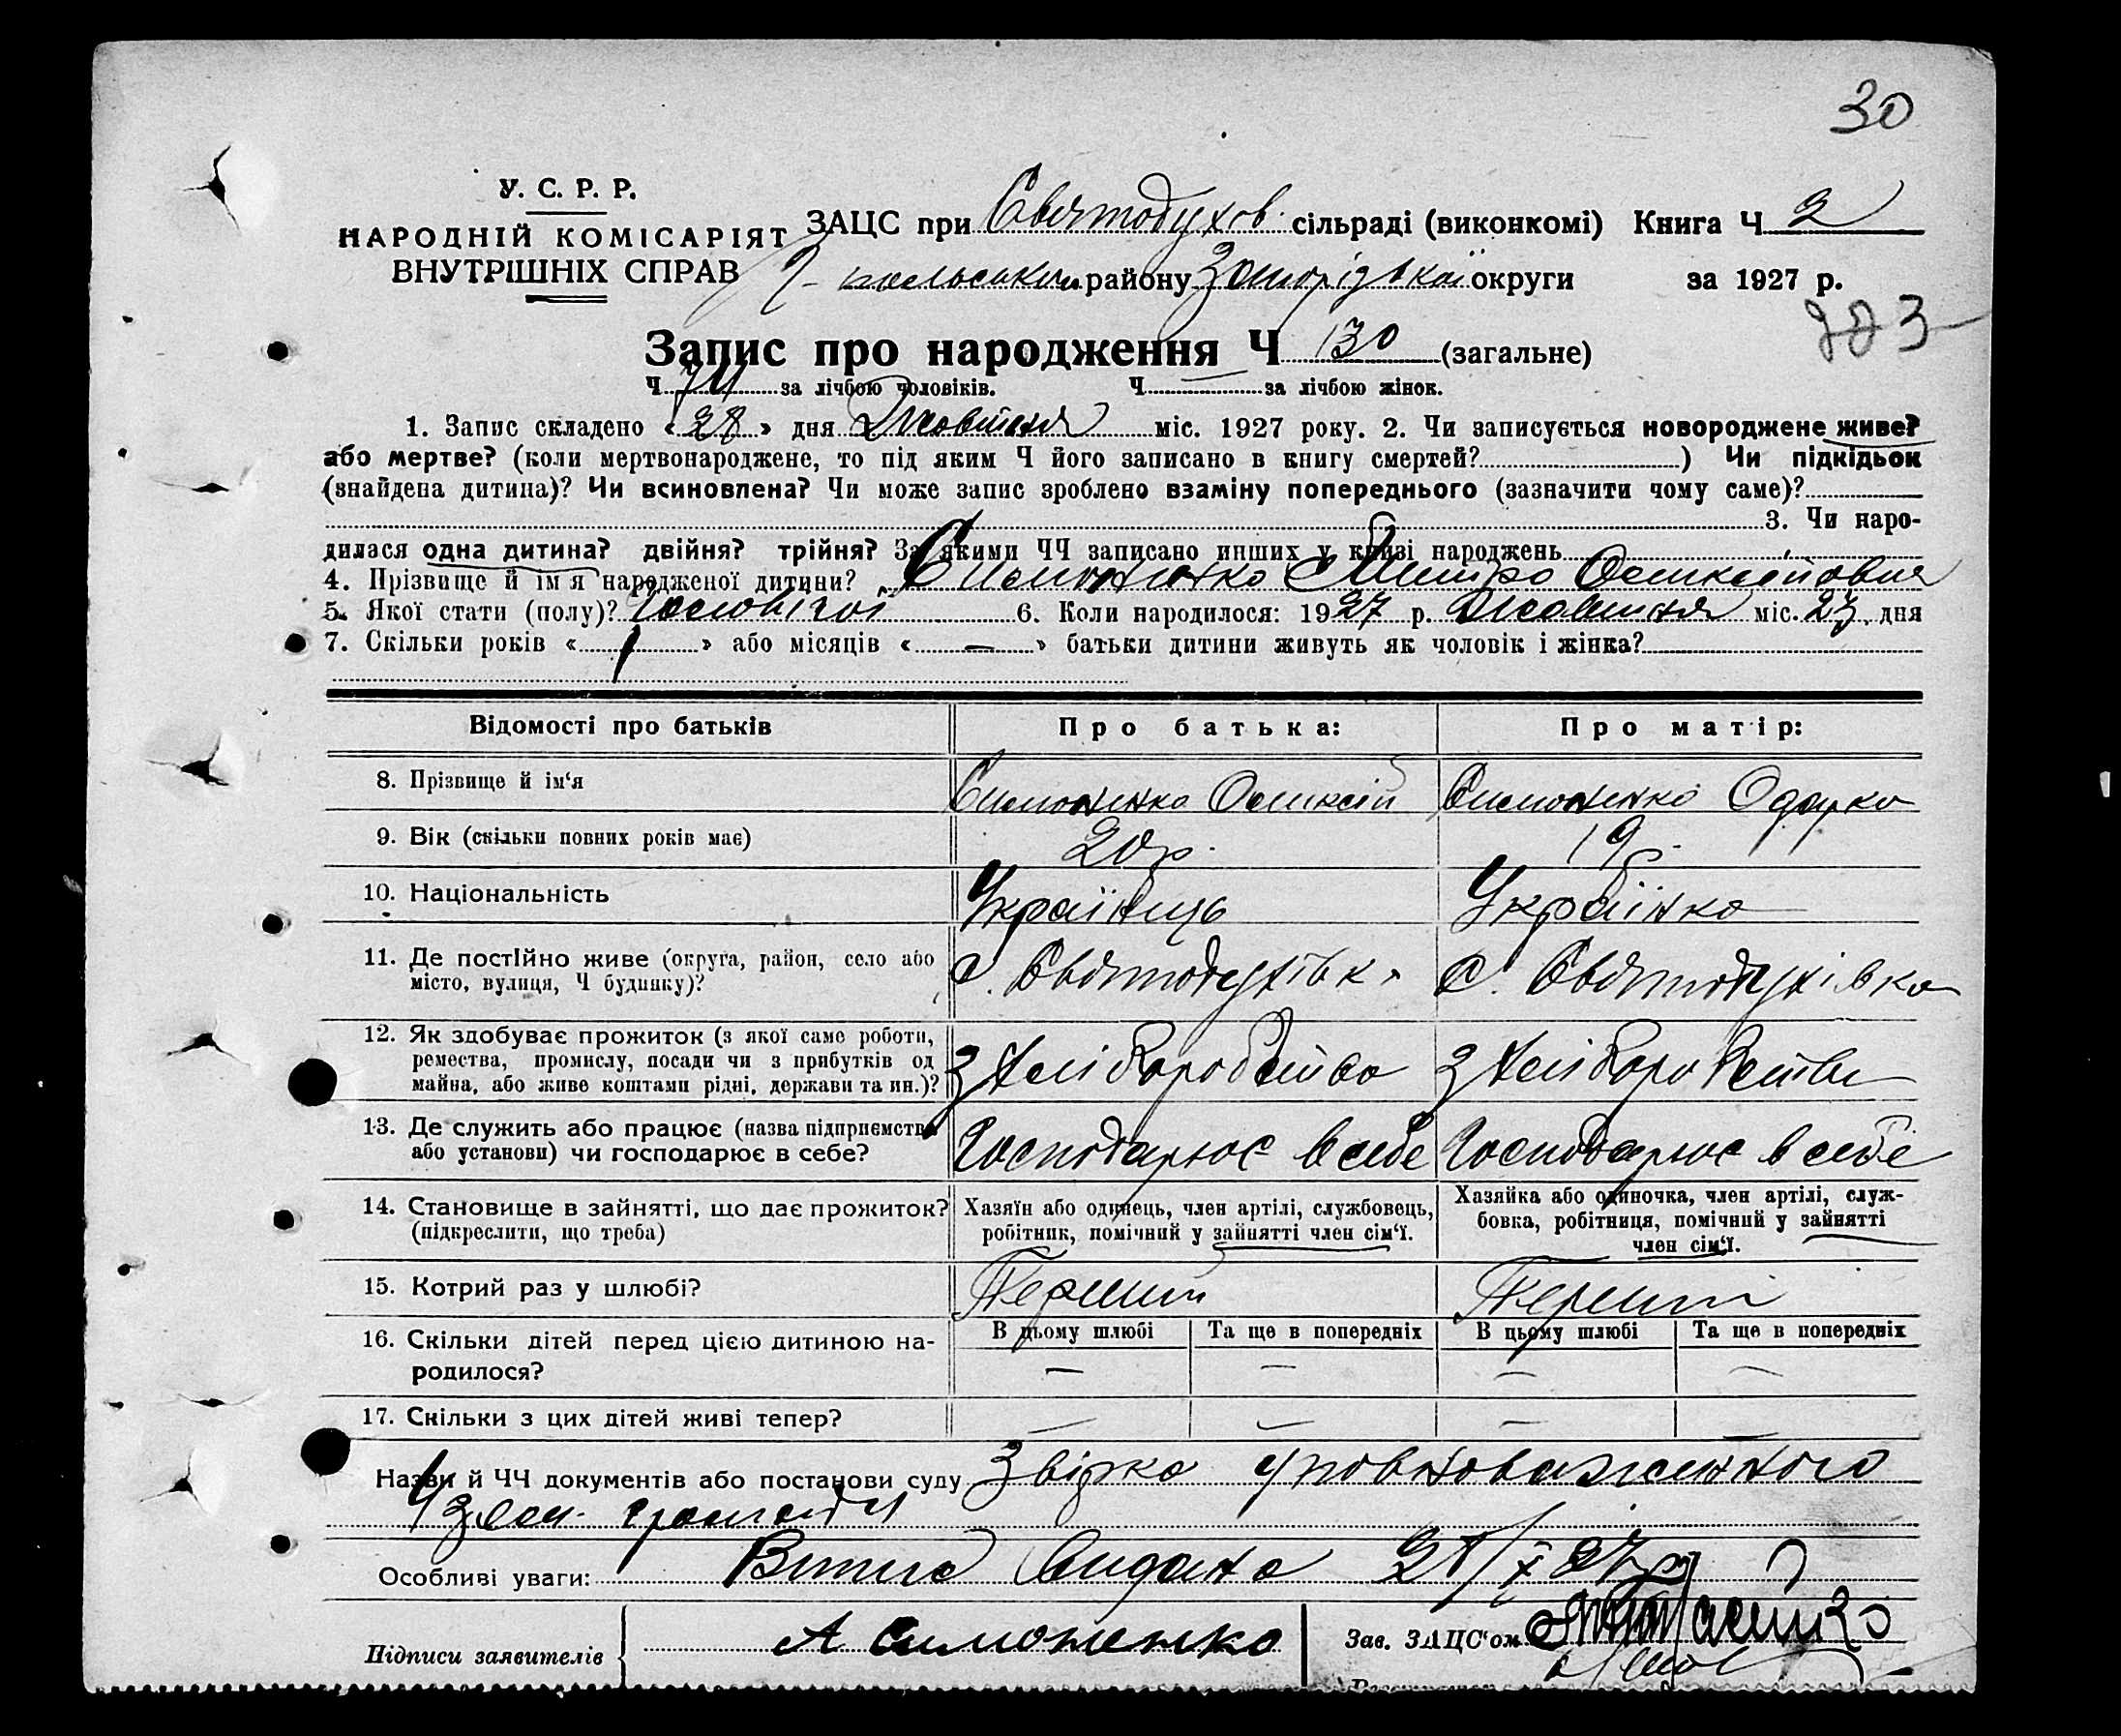 30
У. С. Р. Р.
НАРОДНІЙ КОМІСАРІЯТ
ВНУТРІШНІХ СПРАВ
ЗАЦС при Святодухов. сільраді (виконкомі) Книга Ч 2
району Запорізької округи за 1927 р.
Запис про народження Ч 130 (загальне)
Ч 74 за лічбою чоловіків. Ч — за лічбою жінок.
1. Запис складено «28» дня Жовтня міс. 1927 року. 2. Чи записується новороджене живе?
або мертве? (коли мертвонароджене, то під яким Ч його записано в книгу смертей? ) Чи підкідьок
(знайдена дитина)? Чи всиновлена? Чи може запис зроблено взаміну попереднього (зазначити чому саме)?
3. Чи наро-
дилася одна дитина? двійня? трійня? За якими ЧЧ записано инших у книзі народжень
4. Прізвище й ім'я народженої дитини? Симоненко Дмитро Олексійович
5. Якої стати (полу)? Чоловічої 6. Коли народилося: 1927 р. Жовтня міс. 23 дня
7. Скільки років « 1 » або місяців « — » батьки дитини живуть як чоловік і жінка?
Відомості про батьків Про батька: Про матір:
8. Прізвище й ім'я Симоненко Олексій Симоненко Одарка
9. Вік (скільки повних років має) 20 р. 19 р.
10. Національність Українець Українка
11. Де постійно живе (округа, район, село або
місто, вулиця, Ч будинку)? с. Святодухівка с. Святодухівка
12. Як здобуває прожиток (з якої саме роботи,
ремества, промислу, посади чи з прибутків од
майна, або живе коштами рідні, держави та ин.)? З хліборобства З хліборобства
13. Де служить або працює (назва підприємства
або установи) чи господарює в себе? Господарює в себе Господарює в себе
14. Становище в зайнятті, що дає прожиток?
(підкреслити, що треба)
Хазяїн або одинець, член артілі, службовець,
робітник, помічний у зайнятті член сім'ї.
Хазяйка або одиночка, член артілі, служ-
бовка, робітниця, помічний у зайнятті
член сім'ї.
15. Котрий раз у шлюбі? Перший Перший
16. Скільки дітей перед цією дитиною на-
родилося?
В цьому шлюбі Та ще в попередніх В цьому шлюбі Та ще в попередніх
— — — —
17. Скільки з цих дітей живі тепер? — — — —
Назви й ЧЧ документів або постанови суду Звірка уповноваженного
громади
Особливі уваги: Витяг видано
Підписи заявителів А Симоненко
Зав. ЗАЦС'ом